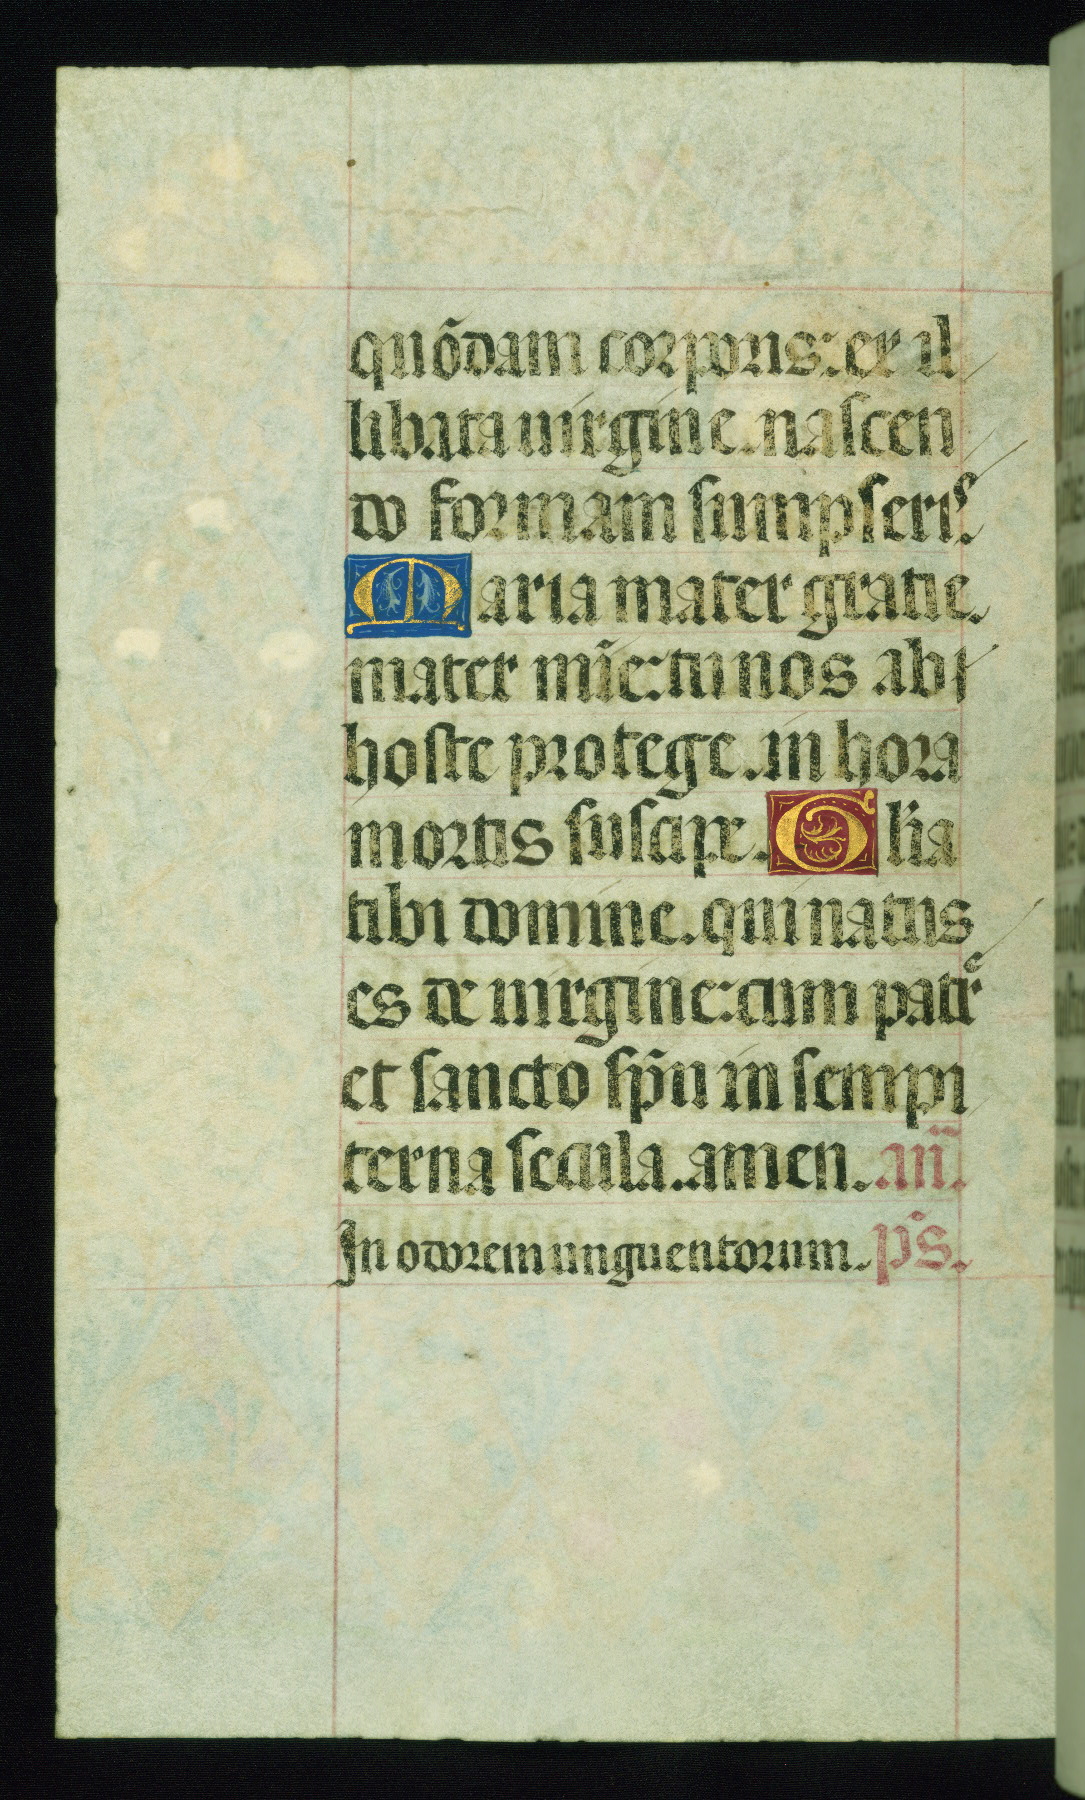 quõdam corporis: ex il
libata uirgine. nascen
do formam sumpseris.
Maria mater gratie.
mater mĩe: tu nos ab
hoste protege. in hora
mortis suscipe. Glia
tibi domine. qui natus
es de uirgine: cum patre
et sancto sp̃u in sempi
terna secula. amen. an̄.
In odorem unguentorum. p̄s.